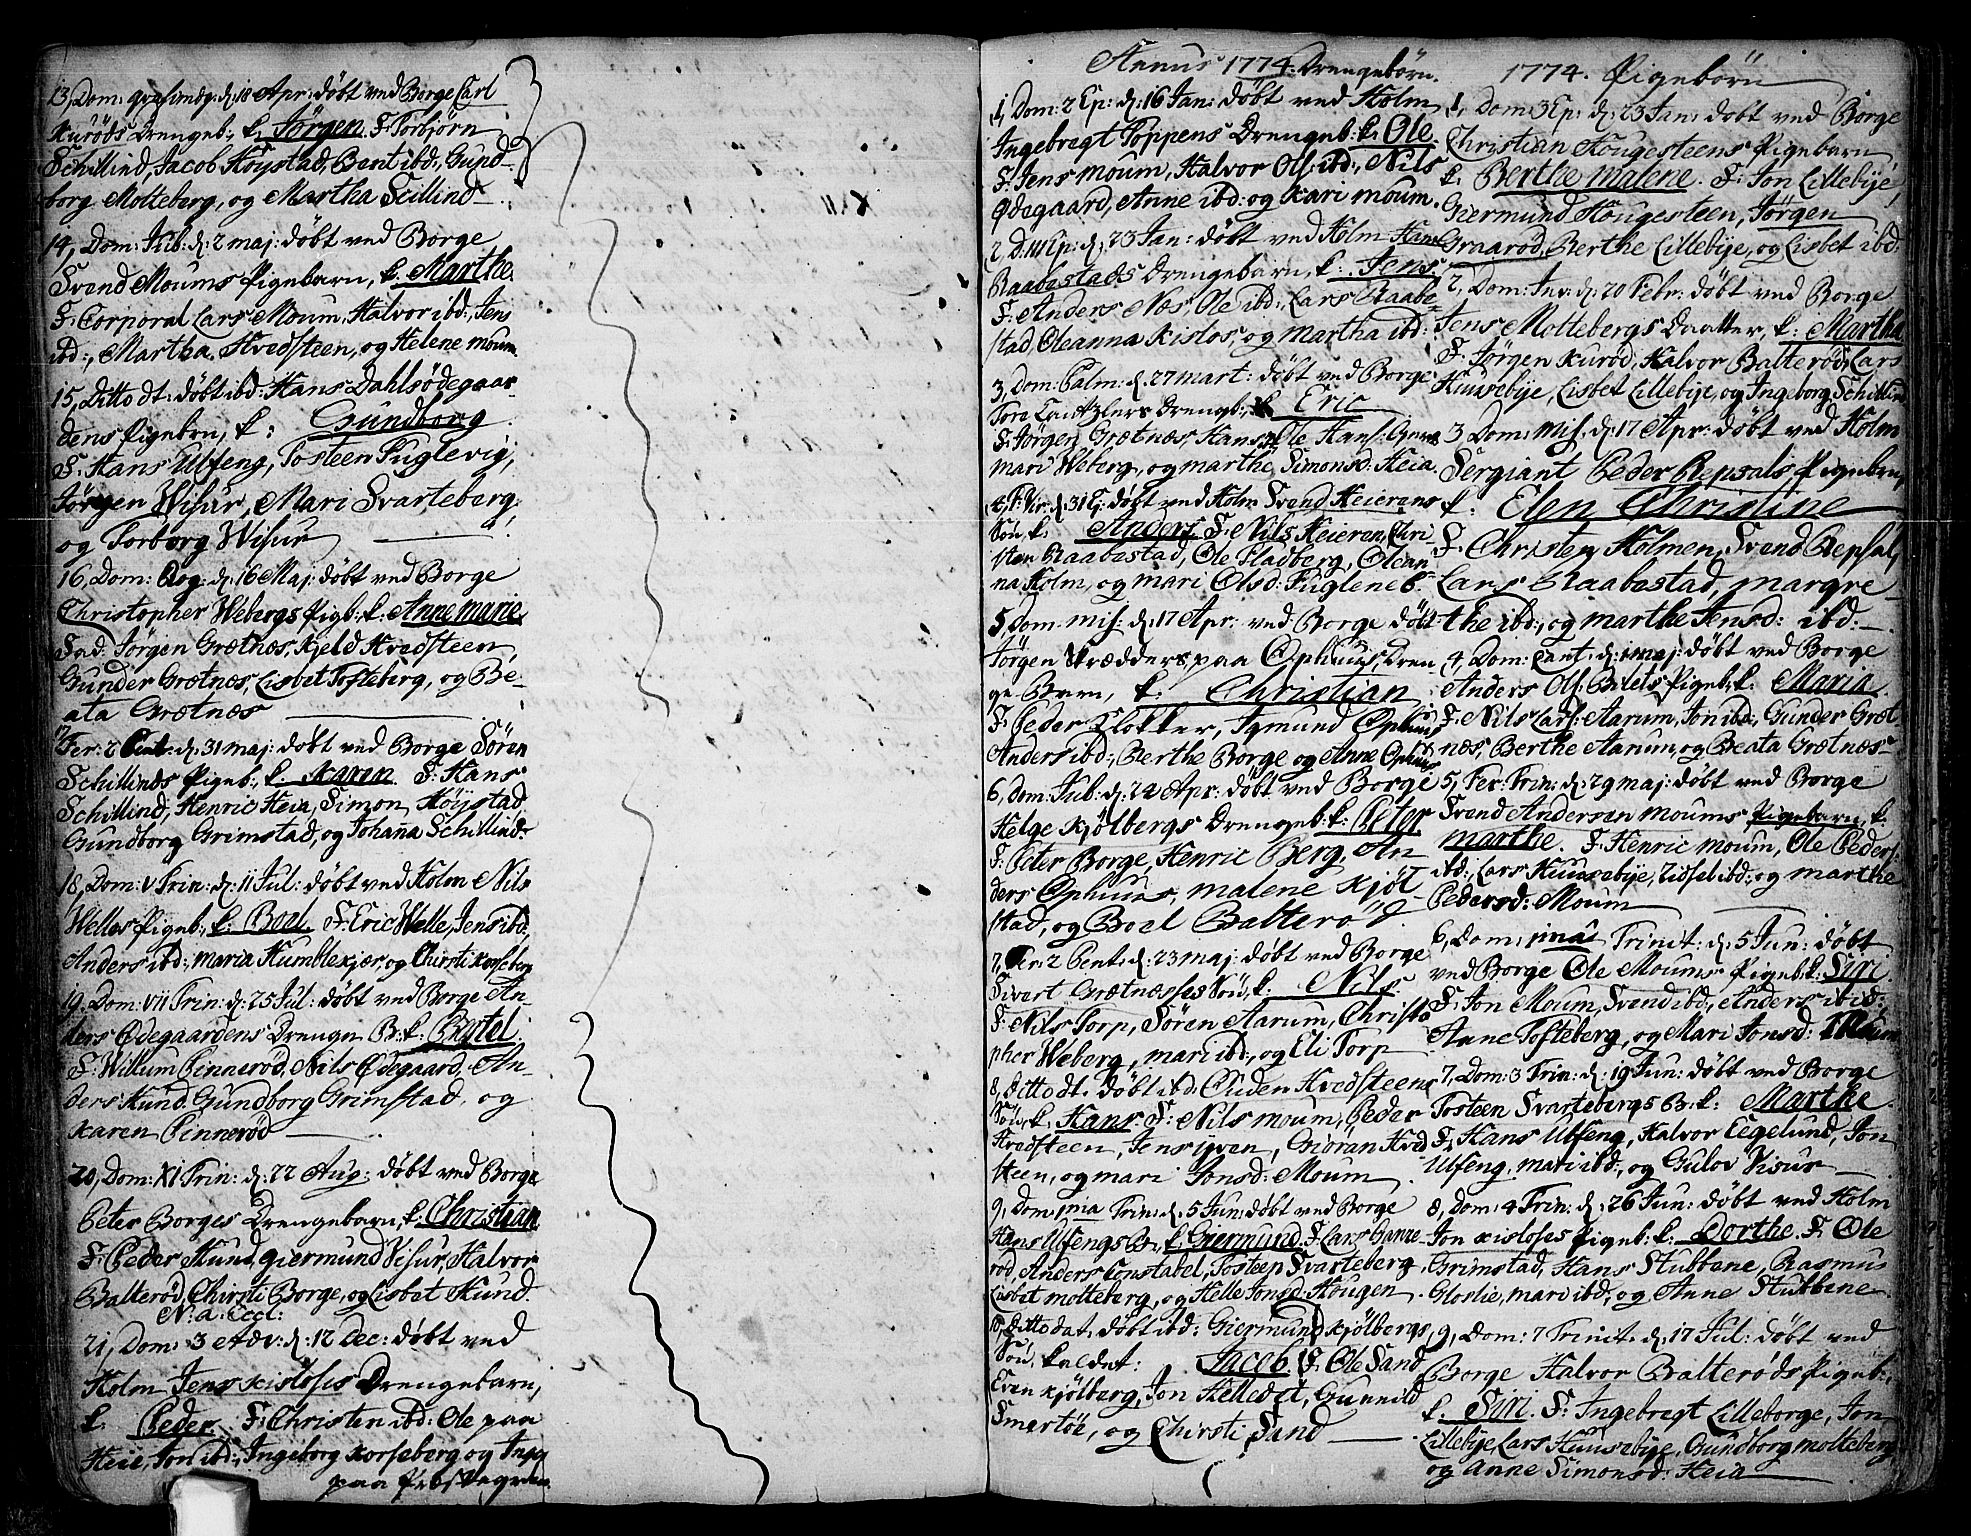 13, Dom: qvasimodg: d: 18 Apr: døbt ved Borge Carl
Kurøds Drengeb:, k. Jørgen F. Torbjørn
Schillind, Jacob Høystad, Bent ibd:, Gund-
borg Motteberg, og Martha Scillind
14, Dom: Jub: d: 2 maj: døbt ved Borge
Svend Moums Pigebarn, k. Marthe.
F. Corporal Lars Moum, Halvor ibd:, Jens
ibd:, Martha Hvedsteen, og Helene moum
15, Ditto dt: døbt ibd: Hans Dahlsødegaar
dens Pigebrn, k: Gundborg
F. Hans Ulfeng, Tosteen Fuglevig,
Jørgen Wisur, Mari Svarteberg,
og Torborg Wisur
16, Dom: Rog: d: 16 Maj: døbt ved Borge
Christopher Webergs Pigb:, k. Anne marie
Fad: Jørgen Grætnæs, Kjeld Hvedsteen,
Gunder Grætnæs, Lisbet Tofteberg, og Be-
ata Grætnæs
17 Fer: 2 Pent: d: 31 maj: døbt ved Borge Søren
Schillinds Pigeb:, k. Karen F: Hans
Schillind, Henric Heia, Simon Høystad,
Gundborg Grimstad, og Johana Schillind.
18, Dom: V Trin: d: 11 Jul: døbt ved Holm Nils
Welles Pigeb:, k: Boel. F. Eric Welle, Jens ibd:,
Anders ibd:, maria Humblekjær, og Chirsti Korseberg
19, Dom: VII Trin: d: 25 Jul: døbt ved Borge An-
ders Ødegaardens Drengn B: k: Bertel.
F: Willum Pinnerød, Nils Ødegaard, An-
ders Hund, Gundborg Grimstad, og
Karen Pinnerød
20, Dom: XI Trin: d: 22 Aug: døbt ved Borge
Peter Borges Drengebarn, k. Christian
F: Peder Hund, giermund Visur, Halvor
Balterød, Chirsti Borge, og Lisbet Hund.
N: a: Eccl:
21, Dom: 3 Adv: d: 12 Dec: døbt ved
Holm Jens Kisloses Drengebarn,
k. Peder F: Christen ibd: Ole paa
Heie, Jon ibd:, Ingeborg Korseberg og Inger
Annus 1774. Drengebørn.
1, Dom: 2 Ep: d: 16 Jan: døbt ved Holm
Ingebregt Toppens Drengeb: k. Ole
F. Jens moum, Halvor Ols: ibd:, Nils
Ødegaard, Anne ibd: og Kari moum.
2, D: III Ep: d: 23 Jan: døbt ved Holm Hans
Raabestads Drengebarn, k: Jens.
F. Anders Næs, Ole ibd:, Lars Raabe-
stad, Oleanna Kislos, og Martha ibd:
3, Dom: Palm: d: 27 mart: døbt ved Borge
Tore Drengb: k. Eric
F. Jørgen Grætnæs, Hans Ole Hans:
mari Weberg, og marthe Simonsd: Heia.
døbt ved Holm Svend Heierens
Søn, k. Anders F: Nils Heieren, Chri-
sten Raabestad, Ole Fladberg, Olean-
na Holm, og mari Olsd:
5, Dom: mis: d: 17 Apr: ved Borge døbt
Jørgen Skrædders paa Ophuus, Dren
ge-Barn, k: Christian
F. Peder Klokker, Igmund Ophuus
Anders ibd:, Berthe Borge og Anne Ophuus
6, Dom: Jub: d: 24 Apr: døbt ved Borge
Helge Kjølbergs Drengeb: k. Peter
F. Peter Borge, Henric Berg, An-
ders Ophuus, malene Kjøl-
stad, og Boel Balterød.
7, Fer: 2 Pent: d: 23 maj: døbt ved Borge
Sivart Grætnæsses Søn, k: Nils
F. Nils Torp, Søren Aarum, Christo
pher Weberg, mari ibd:, og Eli Torp
8, Ditto dt. døbt ibd: Auden Hvedsteens
Søn, k. Hans. F. Nils moum, Peder
Hvedsteen, Jens ijven, Giøran Hved
steen, og mari Jonsd: Moum
9, Dom: 1ma Trin: d: 5 Jun: døbt ved Borge
Hans Ulfengs B:, k: Giermund. F. Lars Hanne-
rød, Anders Constabel, Tosteen Svarteberg,
Lisbet motteberg, og Helle Jonsd: Hougen
10, Ditto dat. døbt ibd: Giermund Kjølbergs
Søn, kaldet: Jacob F. Ole Sand
Even Kjølberg, Jon Gunnild
Smertøe, og Chirsti Sand
1774. Pigebørn
1, Dom 3 Ep: d: 23 Jan: døbt ved Borge
Christian Hougesteens Pigebarn
k. Berthe malene. F. Jon Lillebye,
Giermund Hougesteen, Jørgen
Graarød, Berthe Lillebije, og Lisbet ibd:
2, Dom: Inv: d: 20 Febr: døbt ved Borge
Jens Mottebergs Daatter, k: Martha
F. Jørgen Kurød, Halvor Balterød, Lars
Huusebije, Lisbet Lillebije, og Ingeborg Schillind
3 Dom: mis: d: 17 Apr: døbt ved Holm
Sergiant Peder Repsals, Pigebrn,
k. Elen Christine
F. Christen Holmen, Svend Repsal,
Lars Raabestad, margre-
the ibd:, og marthe Jensd: ibd:
4, Dom: Cant: d: 1 maj: døbt ved Borge
Anders Ols: Bilets Pigeb: k: Maria
F. Nils Lars: Aarum, Jon ibd:, Gunder Græt-
næs, Berthe Aarum, og Beata Grætnæs
5, Fer: Trin: d: 29 maj: døbt ved Borge
Svend Andersen moums Pigebarn, k.
marthe. F. Henric moum, Ole Peders:
ibd:, Lars Huusebije, Zidsel ibd: og marthe
Pedersd: Moum
6, Dom: 1ma Trinit: d: 5 Jun: døbt
ved Borge Ole Moums Pigeb: k: Siri
F. Jon Moum, Svend ibd:, Anders ibid:
Anne Tofteberg, og Mari Jonsd: Moum
7, Dom: 3 Trin: d: 19 Jun: døbt ved Borge
Tosteen Svartebergs B: k: Marthe
F. Hans Ulfeng, Halvor Eegelund, Jon
Ulfeng, mari ibd:, og Gulov Visur
8, Dom: 4 Trin: d: 26 Jun: døbt ved Holm
Jon Kisloses Pigeb: k: Dorthe. F. Ole
Grimstad, Hans Stubbene, Rasmus
Gloslie, mari ibd:, og Anne Stubbene
9, Dom: 7 Trinit: d: 17 Jul: døbt ved
Borge Halvor Balterøds Pigeb:,
k. Siri. F. Ingebregt Lilleborge, Jon
Lillebije, Lars Huusebije, Gundborg motteberg,
og Anne Simonsd: Heia